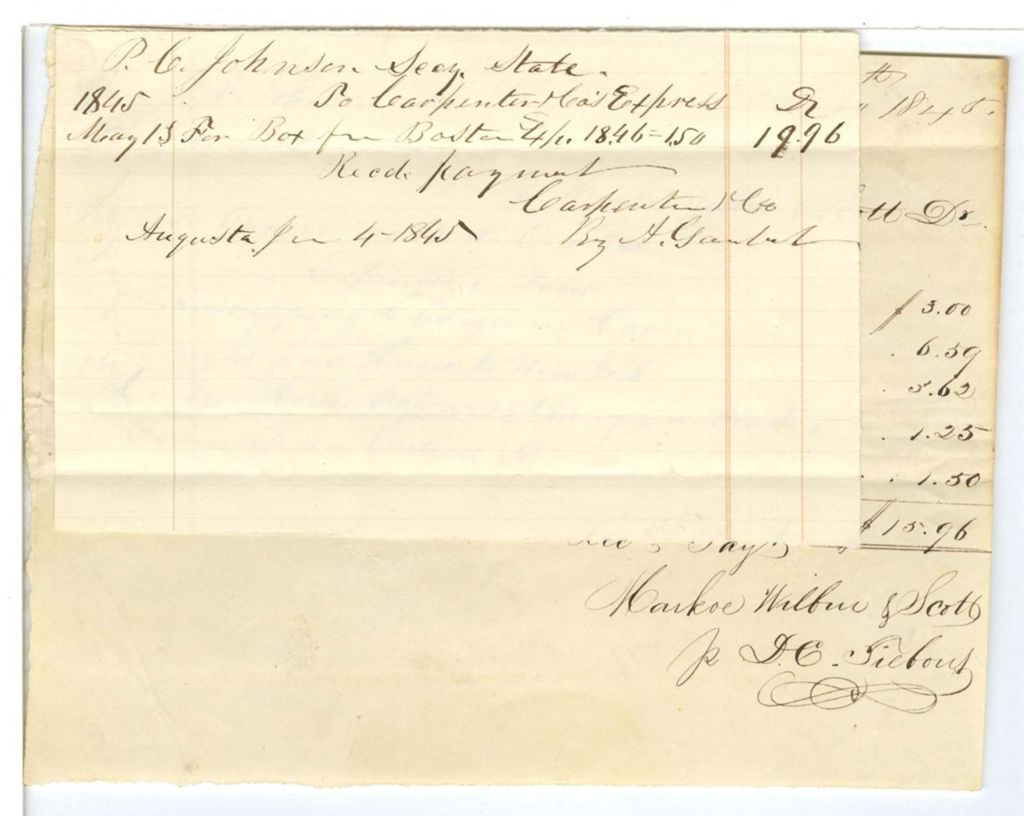 P. C. Johnson Secy. State.
1845 To Carpenter & Co's Express Dr
May 13 For Box fm Boston 4/. 18.46 = 1.50 19.96
Recd. payment
Carpenter & Co
Augusta 4 - 1845 By A.
th
" 1845.
ott Dr.
$ 3.00
. 6.59
. 3.62
. 1.25
. . 1.50
$ 15.96
Pay
Markoe Wilbur & Scott
p D. C. Tiebout